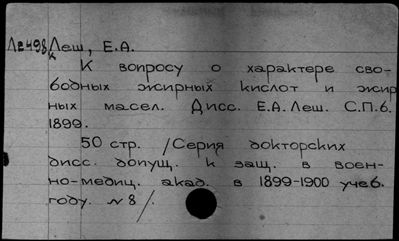 Ле498 Леш, Е.А.
К вопросу о характере сво-
бодных жирных кислот и жир
ных масел. Дисс. Е.А. Леш. С.П.б.
1899.
50 стр. /Серия докторских
дисс. допущ. к защ. в воен-
но-медиц. акад. в 1899-1900 учеб.
году. № 8/.